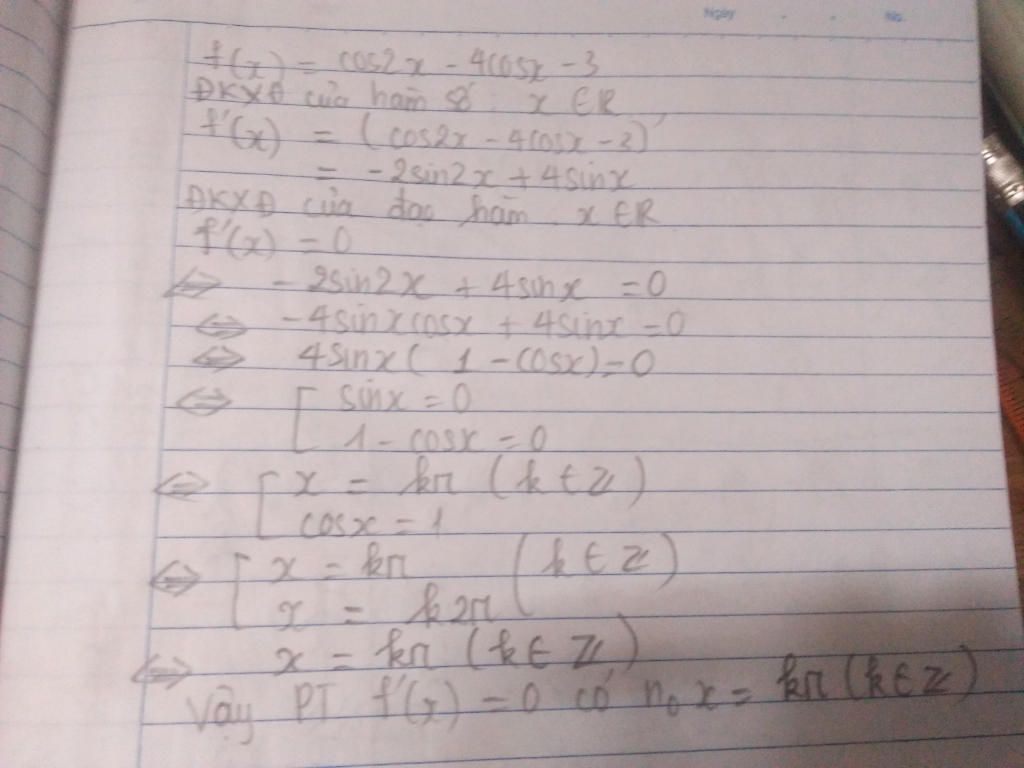 Ngày . . No.
f(x) = cos2x - 4cosx - 3
ĐKXĐ của hàm số : x ∈ R
f'(x) = (cos2x - 4cosx - 3)'
= -2sin2x + 4sinx
ĐKXĐ của đạo hàm : x ∈ R
f'(x) = 0
⇔ -2sin2x + 4sinx = 0
⇔ -4sinxcosx + 4sinx = 0
⇔ 4sinx( 1 - cosx) = 0
⇔ [ sinx = 0
1 - cosx = 0
⇔ [ x = kπ (k ∈ Z)
cosx = 1
⇔ [ x = kπ (k ∈ Z)
x = k2π
⇔ x = kπ (k ∈ Z)
Vậy PT f'(x) = 0 có n₀ x = kπ (k ∈ Z)